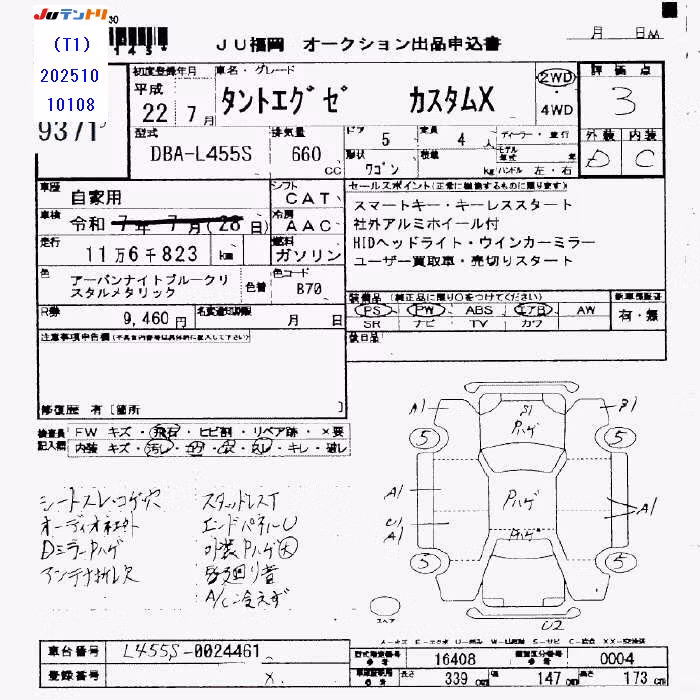 JUテントリ 30
(T1)
202510
10108
9371
JU福岡 オークション出品申込書
月 日
初度登録年月
平成
22 7月
車名・グレード
タントエグゼ カスタムX
2WD
4WD
評価点
3
外装 内装
D C
型式
DBA-L455S
排気量
660
CC
ドア 5
定員 4 人
形状 ワゴン
積載 kg
ディーラー・並行
モデル年式 年
ハンドル 左・右
車歴
自家用
シフト
CAT
車検
令和 7年 7月(28日)
冷房
AAC
走行
11万6千823 km
燃料
ガソリン
色
アーバンナイトブルークリ
スタルメタリック
色替
色コード
B70
R券
9,460円
名変違反期限
月 日
セールスポイント(正常に機能するものに限ります)
スマートキー・キーレススタート
社外アルミホイール付
HIDヘッドライト・ウインカーミラー
ユーザー買取車・売切りスタート
装備品 (純正品に限り○をつけてください)
PS PW ABS エアB AW
SR ナビ TV カワ
新車保証書
有・無
後日品
注意事項申告欄
修復歴 有 [箇所 ]
検査員記入欄
FW キズ・飛石・ヒビ割・リペア跡・×要
内装 キズ・汚レ・・・・キレ・破レ
シートスレ・コゲ穴
オーディオ
DミラーPハゲ
アンテナ
スタッドレスT
エンドパネルU
外装Pハゲ大
廻り音
A/C冷えず
A1 S1 Pハゲ B1
5 5
A1 Pハゲ A1
U1
A1 Pハゲ
5 5
スペア
U2
車台番号
L455S-0024461
登録番号
型式指定番号
16408
類別区分番号
0004
長さ 339 cm 幅 147 cm 高さ 173 cm